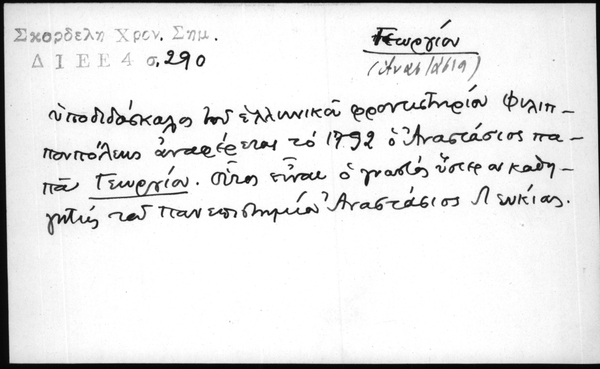 Σκορδέλη Χρον. Σημ.
ΔΙΕΕ 4 σ. 290
Γεωργίου
(Αναστάσιο)
ὑποδιδάσκαλος τοῦ ἑλληνικοῦ φροντιστηρίου Φιλιπ-
πουπόλεως ἀναφέρεται τὸ 1792 ὁ Ἀναστάσιος πα-
πᾶ Γεωργίου. οὗτος εἶναι ὁ γνωστὸς ὕστερον καθη-
γητὴς τοῦ Πανεπιστημίου Ἀναστάσιος Λευκίας.